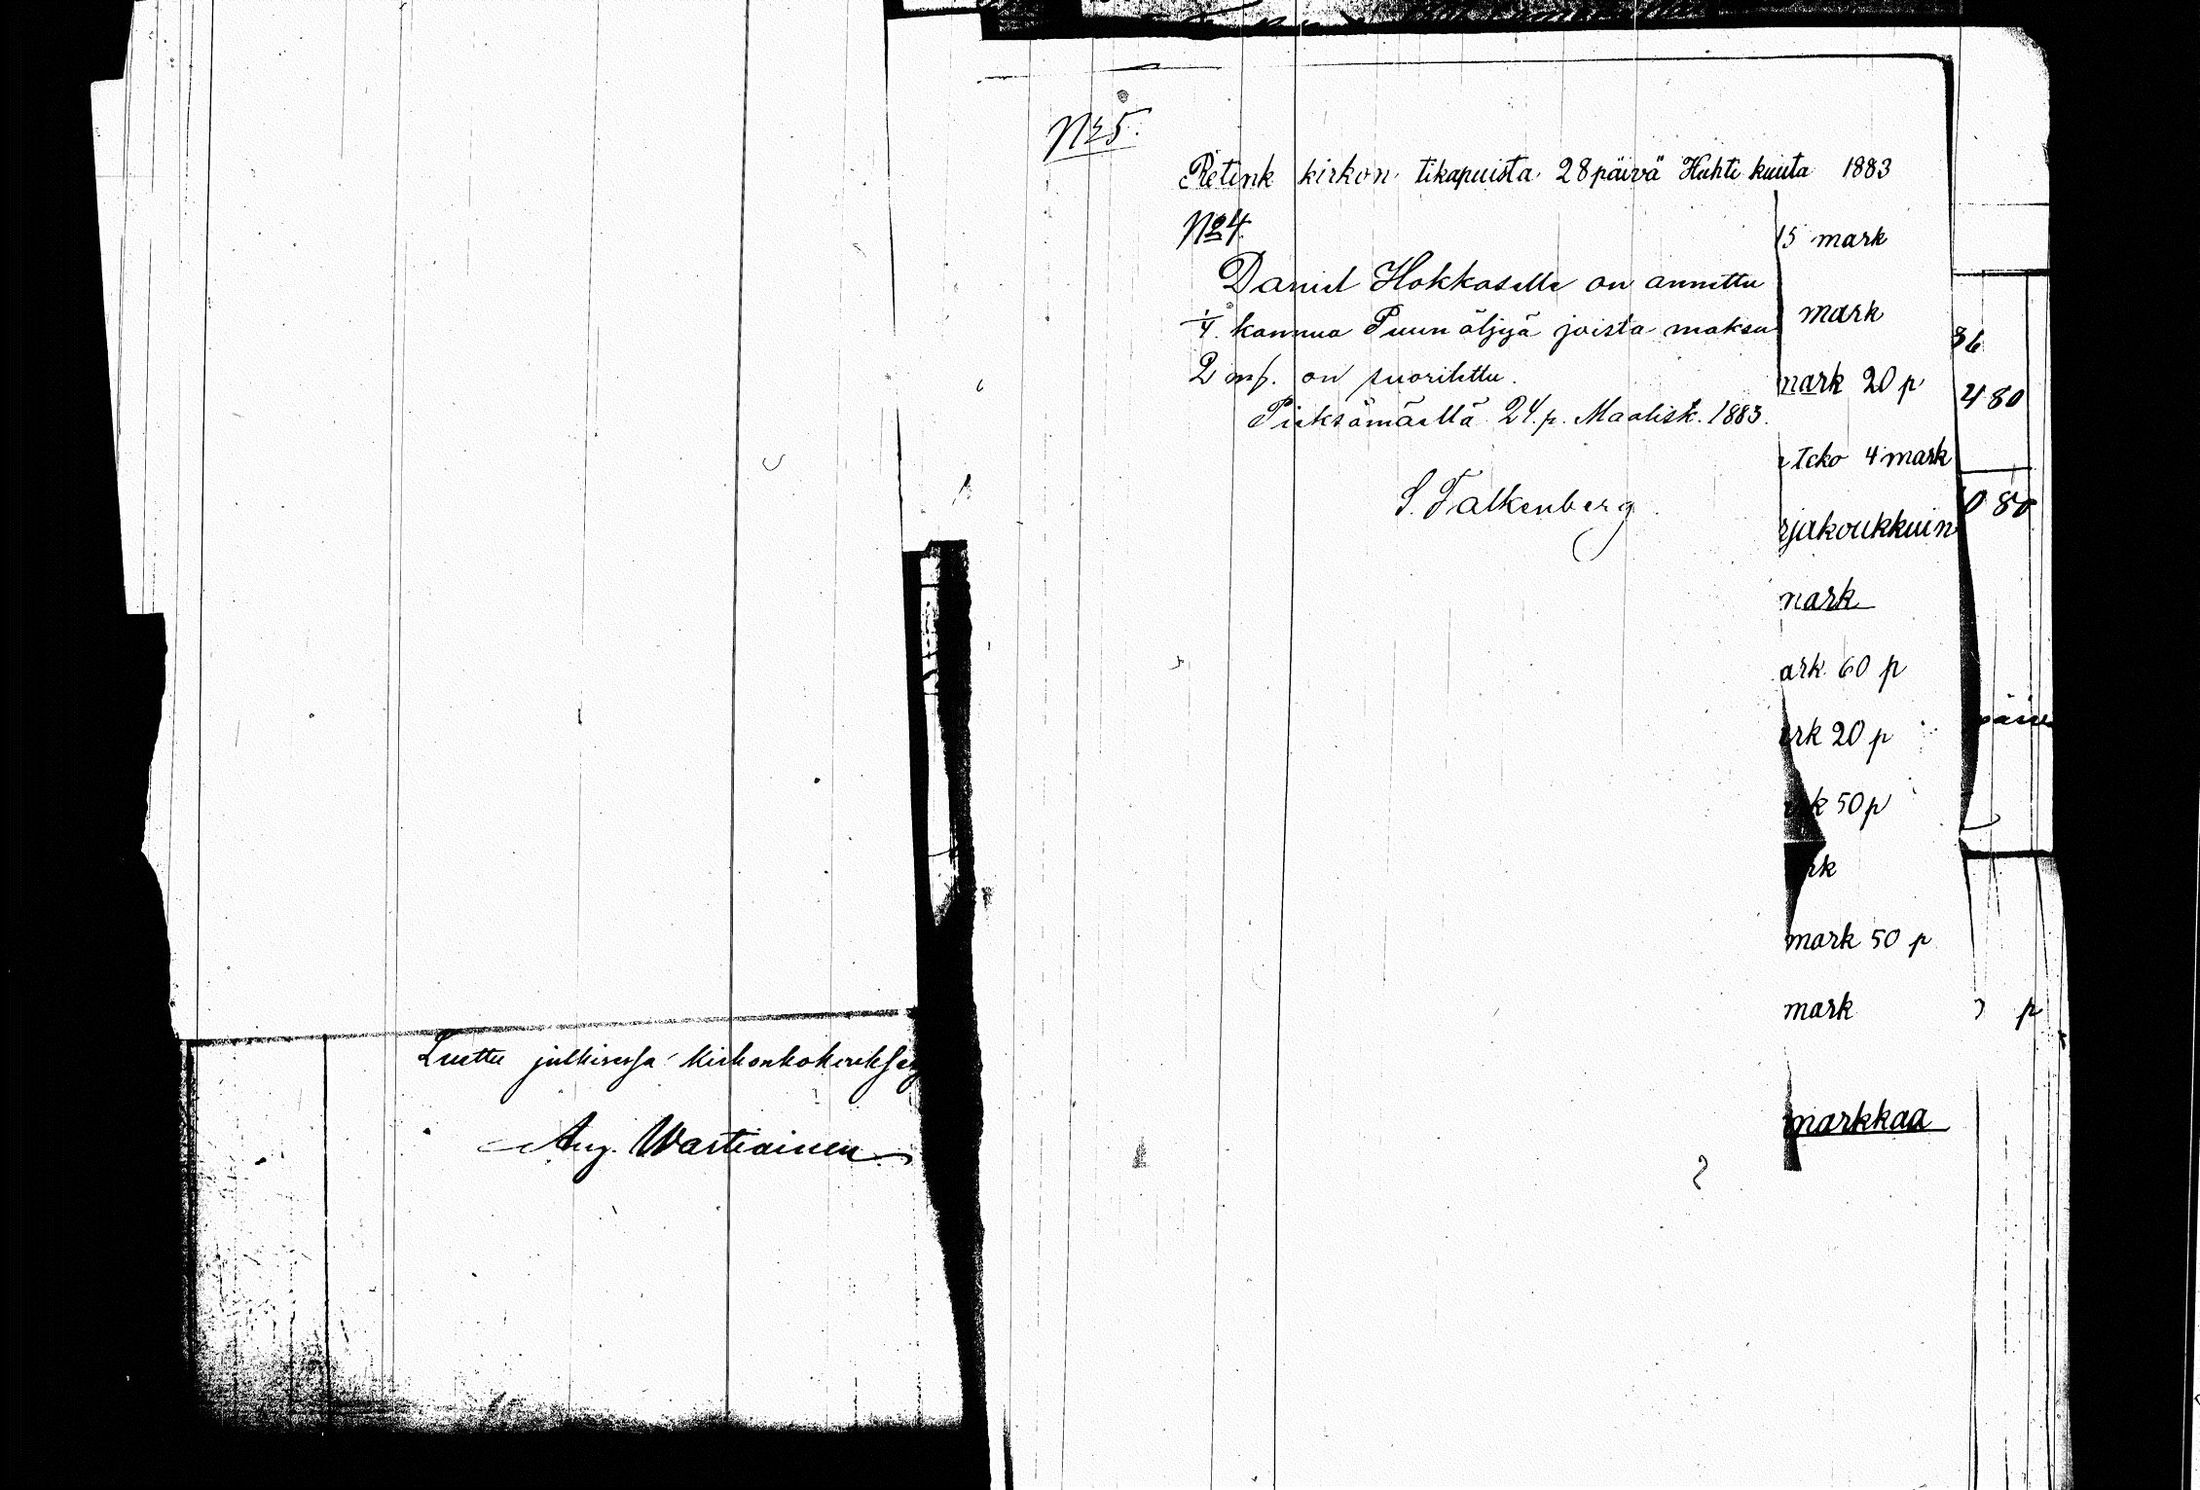 Luettu julkisessa kirkonkokouksessa
Aug. Wartiainen
No 5.
Retink kirkon tikapuista 28 päivä Huhti kuuta 1883
No 4.
15 mark
Daniel Hokkaselle on annettu
mark
1/4 kannua Puun öljyä joista maksu
36
2 mp. on suoritettu.
mark 20 p
4 80
Pieksämäellä 24 p. Maalisk. 1883.
teko 4 mark
0 80
S. Falkenberg
rjakoukkuin
mark
ark 60 p
ark 20 p
rk 50 p
rk
mark 50 p
mark
p
markkaa